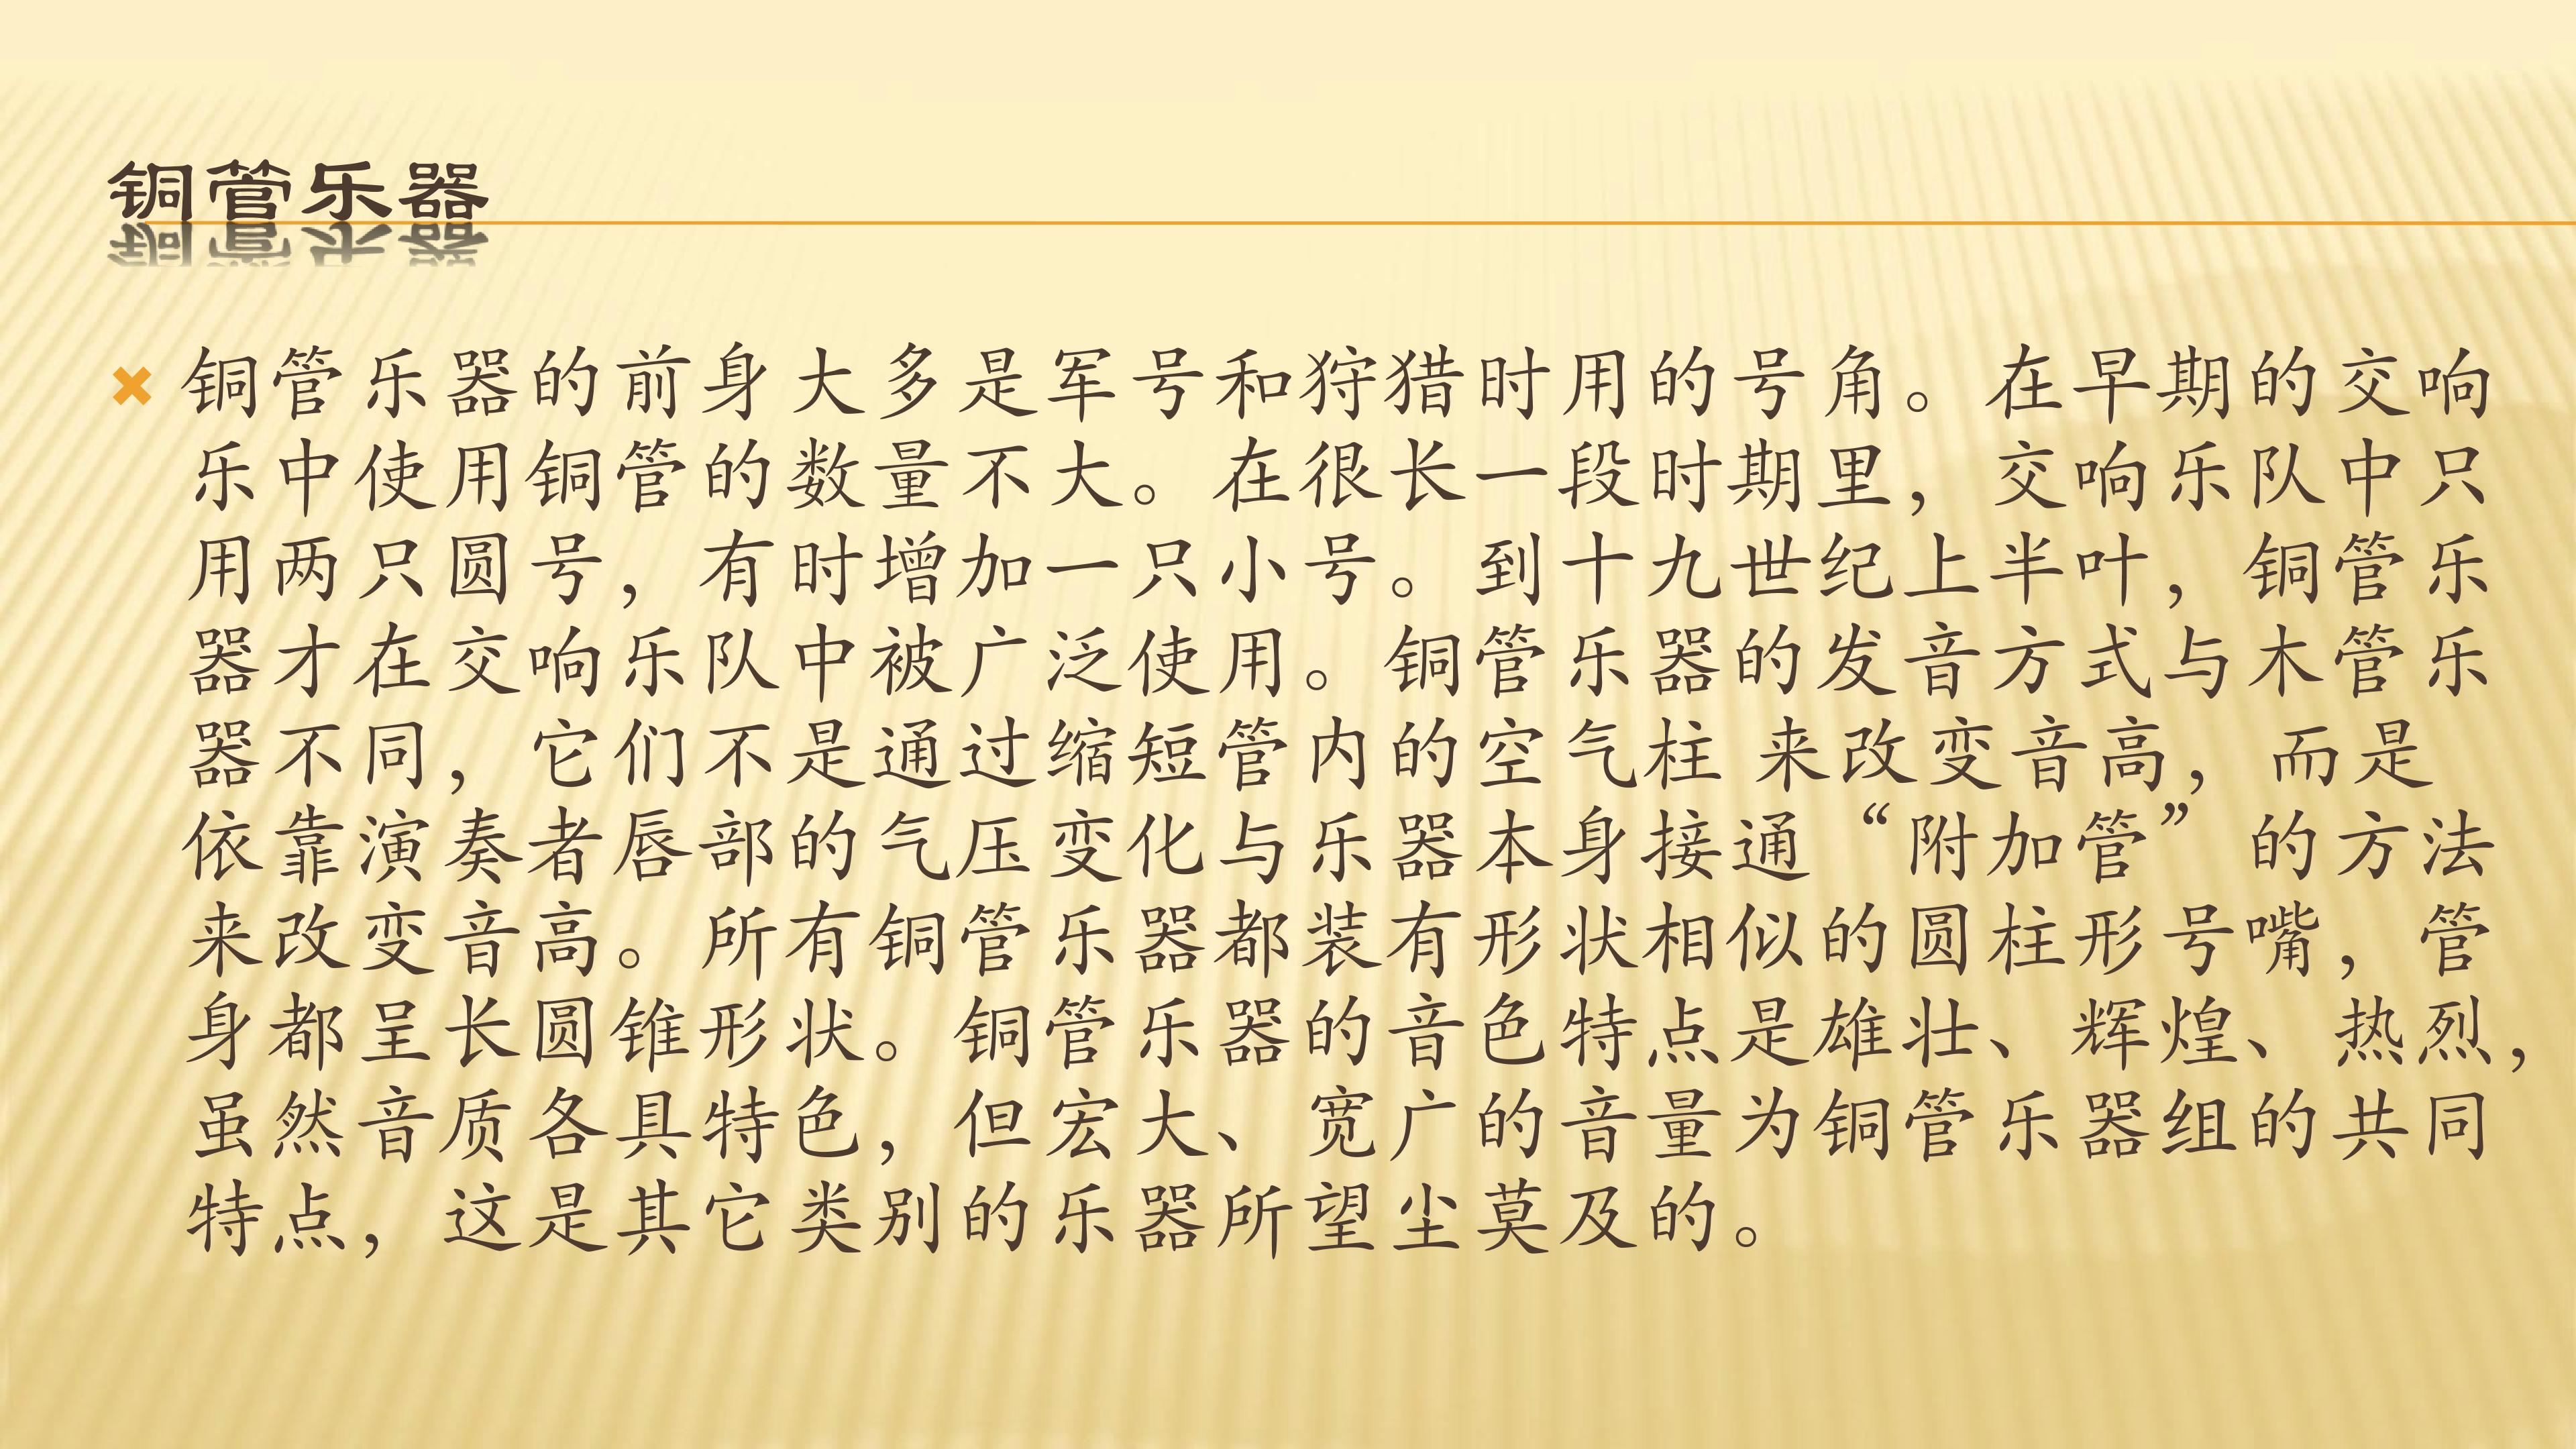 铜管乐器
铜管乐器的前身大多是军号和狩猎时用的号角。在早期的交响
乐中使用铜管的数量不大。在很长一段时期里，交响乐队中只
用两只圆号，有时增加一只小号。到十九世纪上半叶，铜管乐
器才在交响乐队中被广泛使用。铜管乐器的发音方式与木管乐
器不同，它们不是通过缩短管内的空气柱 来改变音高，而是
依靠演奏者唇部的气压变化与乐器本身接通“附加管”的方法
来改变音高。所有铜管乐器都装有形状相似的圆柱形号嘴，管
身都呈长圆锥形状。铜管乐器的音色特点是雄壮、辉煌、热烈，
虽然音质各具特色，但宏大、宽广的音量为铜管乐器组的共同
特点，这是其它类别的乐器所望尘莫及的。